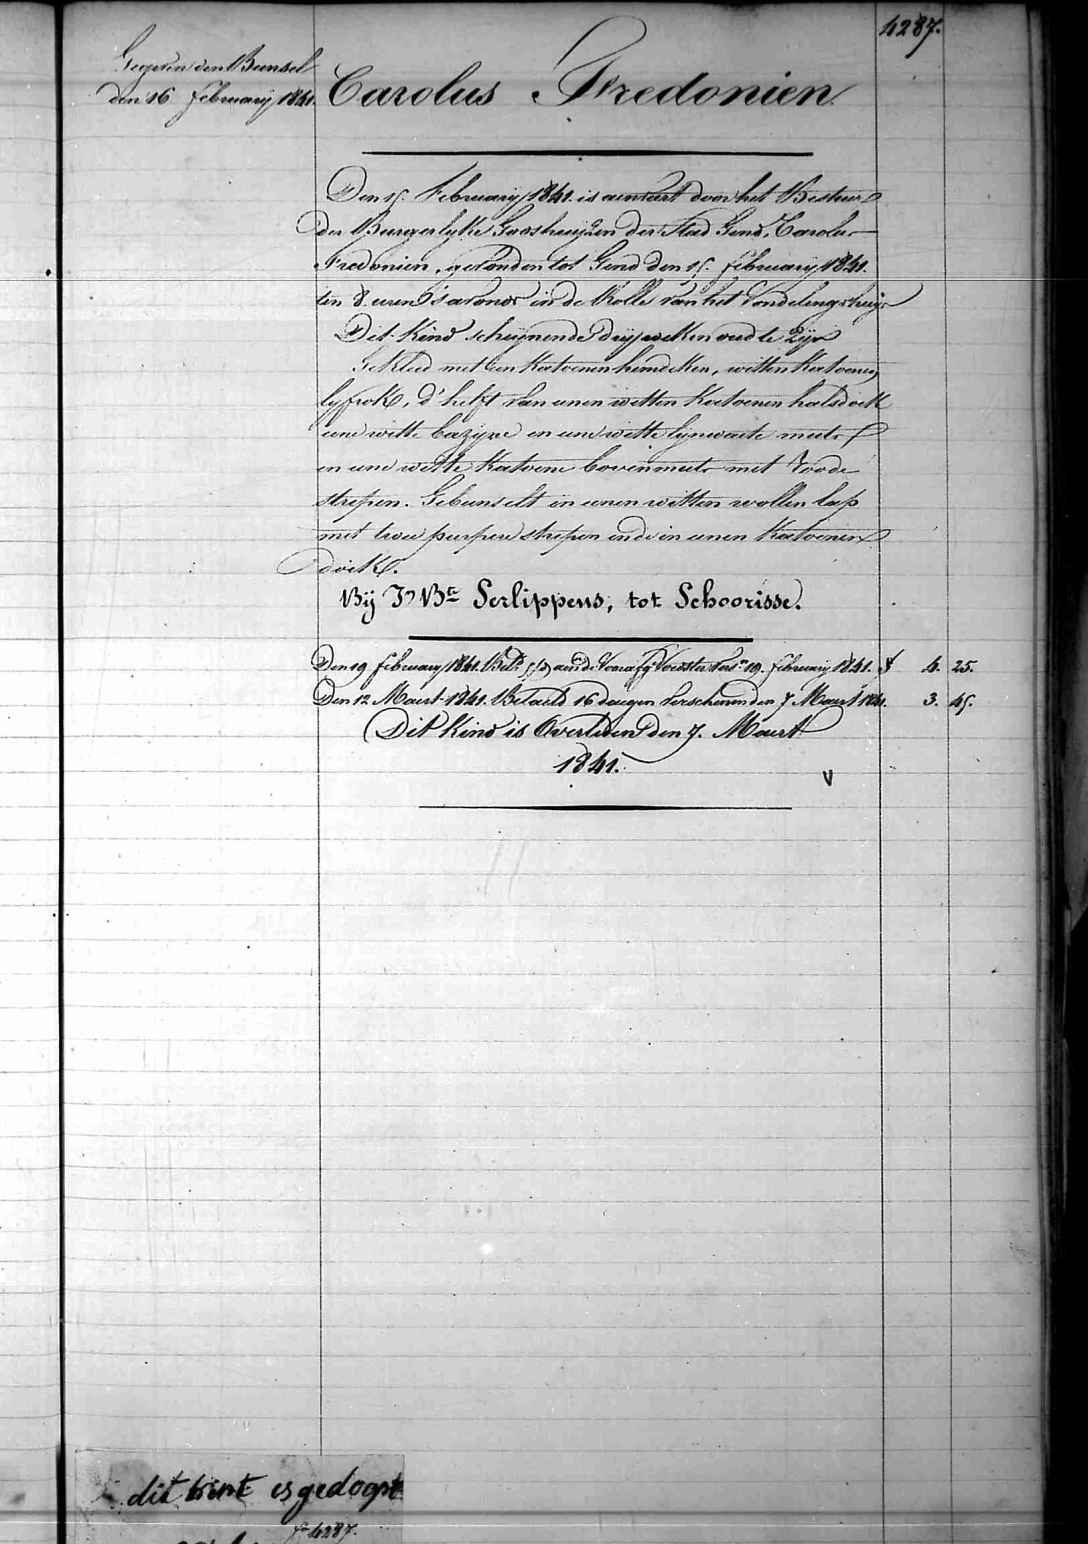 4287.
Gegeven den Bunsel
den 16 february 1841.
Carolus Fredonien.
Den 15 February 1841. is aenvaert door het Bestuer
der Burgerlyke Godshuyzen der Stad Gend, Carolus
Fredonien, gevonden tot Gend den 15 february 1841.
ten 8 uren 's avonds in de Rolle van het Vondelingshuys
Dit Kind schynende dry weken oud te zyn
Gekleed met een Katoenen hemdeken, witten Katoenen
lyfrok, d'helft van eenen witten Katoenen halsdoek
eene witte bazyne en eene witte lynwaete muts
en eene witte Katoene bovenmuts met roode
strepen. Gebunselt in eenen witten wollen lap
met twee purpere strepen ende in eenen Katoenen
doek.
By J. Bte Serlippens, tot Schoorisse.
Den 19 february 1841. Bet. aen de Voester 19. february 1841. f 4. 25.
Den 12 Maert 1841. Betaeld 16 daegen verschenen den 7 Maert 1841. 3. 45.
Dit Kind is Overleden den 7. Maert
1841.
V
dit kint is gedogpt
f° 4287.